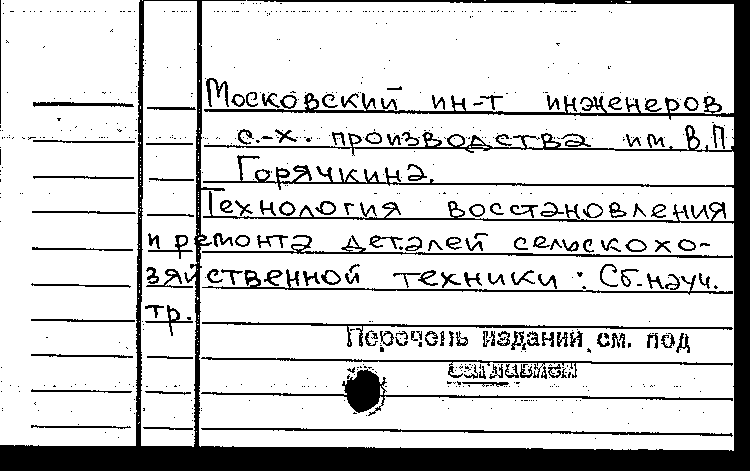 Московский ин-т инженеров
с.-х. производства им. В.П.
Горячкина.
Технология восстановления
и ремонта деталей сельскохо-
зяйственной техники : Сб. науч.
тр.
Перечень изданий см. под
заглавием